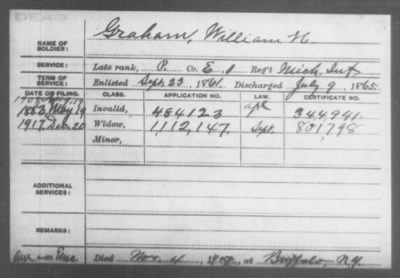 DEAD
Graham, William H.
NAME OF SOLDIER:
SERVICE: Late rank, P. Co. E, 1 Reg't Mich. Inf.
TERM OF SERVICE: Enlisted Sept. 23, 1861. Discharged July 9, 1865.
DATE OF FILING. CLASS. APPLICATION NO. LAW. CERTIFICATE NO.
1883 May 19 Invalid, 484123 344941.
1917 Dec 20 Widow, 1,112,147. Sept. 831,798
Minor,
ADDITIONAL SERVICES:
REMARKS:
Died Nov. 4, 1908, at Buffalo, N.Y.